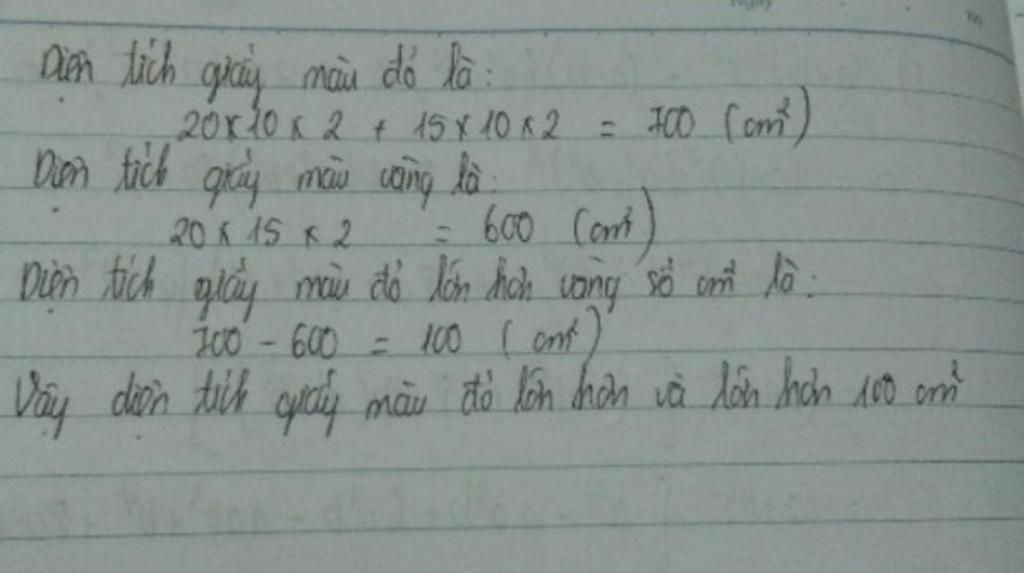 Diện tích giấy màu đỏ là:
20 x 10 x 2 + 15 x 10 x 2 = 700 (cm²)
Diện tích giấy màu vàng là:
20 x 15 x 2 = 600 (cm²)
Diện tích giấy màu đỏ lớn hơn vàng số cm² là:
700 - 600 = 100 (cm²)
Vậy diện tích giấy màu đỏ lớn hơn và lớn hơn 100 cm²